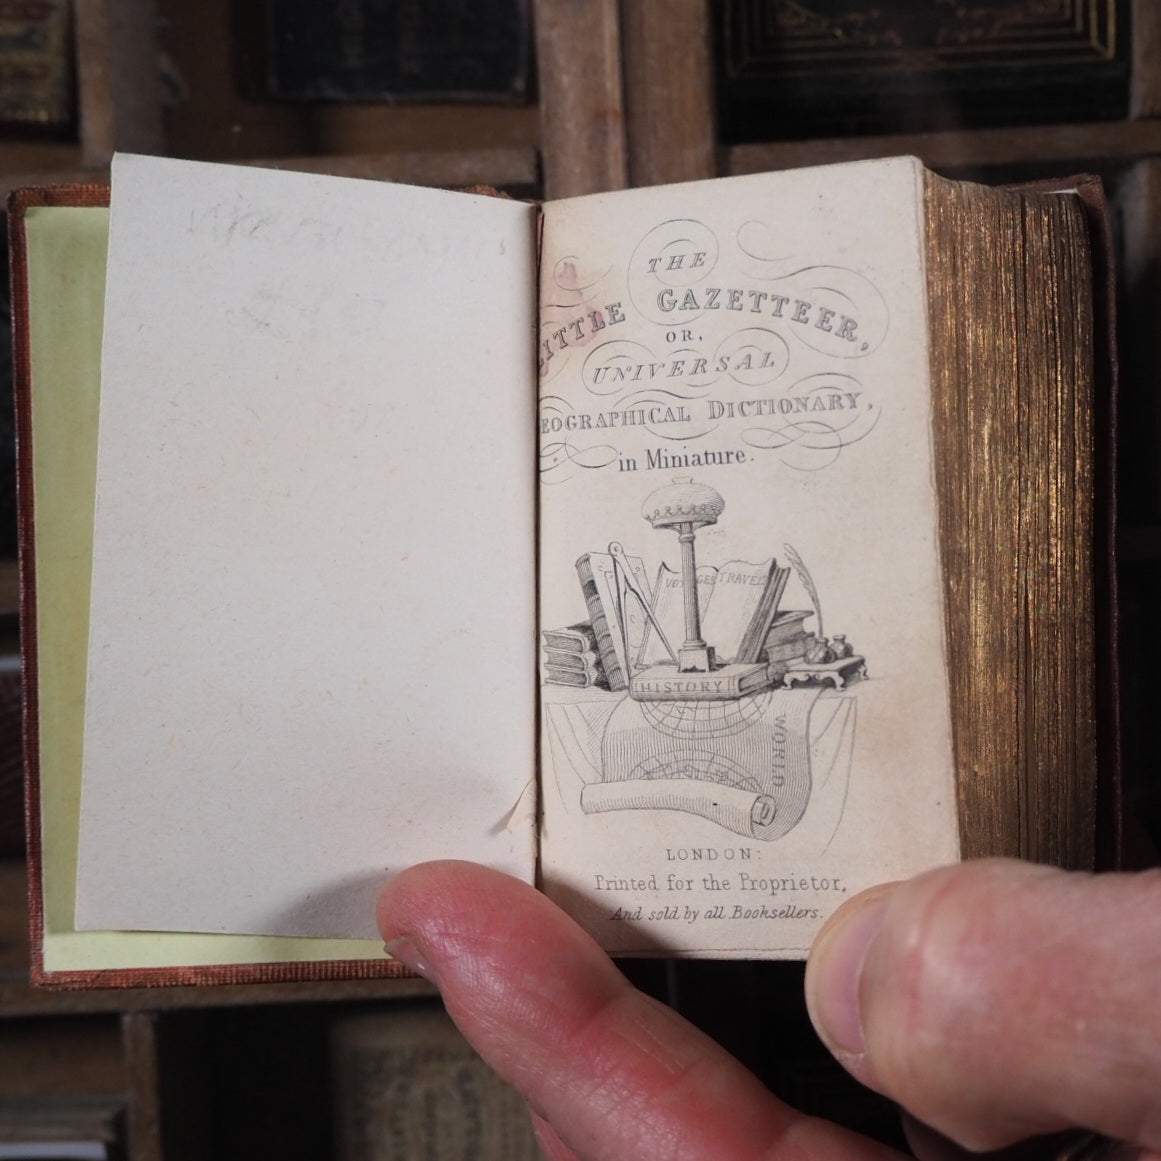 THE
LITTLE GAZETTEER,
OR,
UNIVERSAL
EOGRAPHICAL DICTIONARY,
in Miniature.
VOYAGES TRAVELS
HISTORY
WORLD
LONDON:
Printed for the Proprietor,
And sold by all Booksellers.